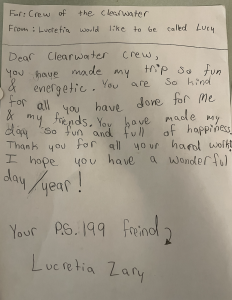 For: Crew of the Clearwater
From: Lucretia would like to be called Lucy
Dear Clearwater Crew,
you have made my trip so fun
& energetic. You are so kind
for all you have done for me
& my frends. You have made my
day so fun and full of happiness.
Thank you for all your hard work!
I hope you have a wonderful
day/year!
Your P.S. 199 freind,
Lucretia Zary